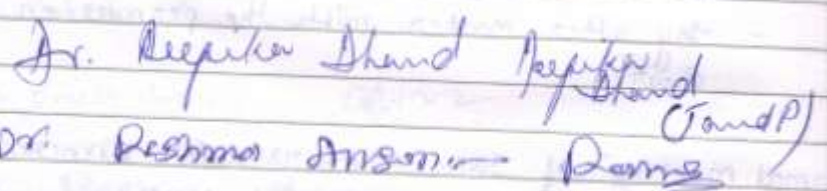 Dr. Deepika Dhand Deepika Dhand
(T and P)
Dr. Reshma Ansari